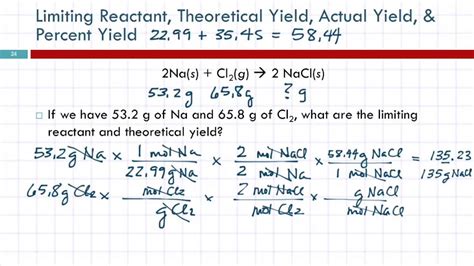 Limiting Reactant, Theoretical Yield, Actual Yield, &
Percent Yield 22.99 + 35.45 = 58.44
24
2Na(s) + Cl₂(g) → 2 NaCl(s)
53.2g 65.8g ? g
If we have 53.2 g of Na and 65.8 g of Cl₂, what are the limiting
reactant and theoretical yield?
53.2g Na x 1 mol Na / 22.99 g Na x 2 mol NaCl / 2 mol Na x 58.44g NaCl / 1 mol NaCl = 135.23
135g NaCl
65.8g Cl₂ x mol Cl₂ / g Cl₂ x 2 mol NaCl / mol Cl₂ x g NaCl / mol NaCl